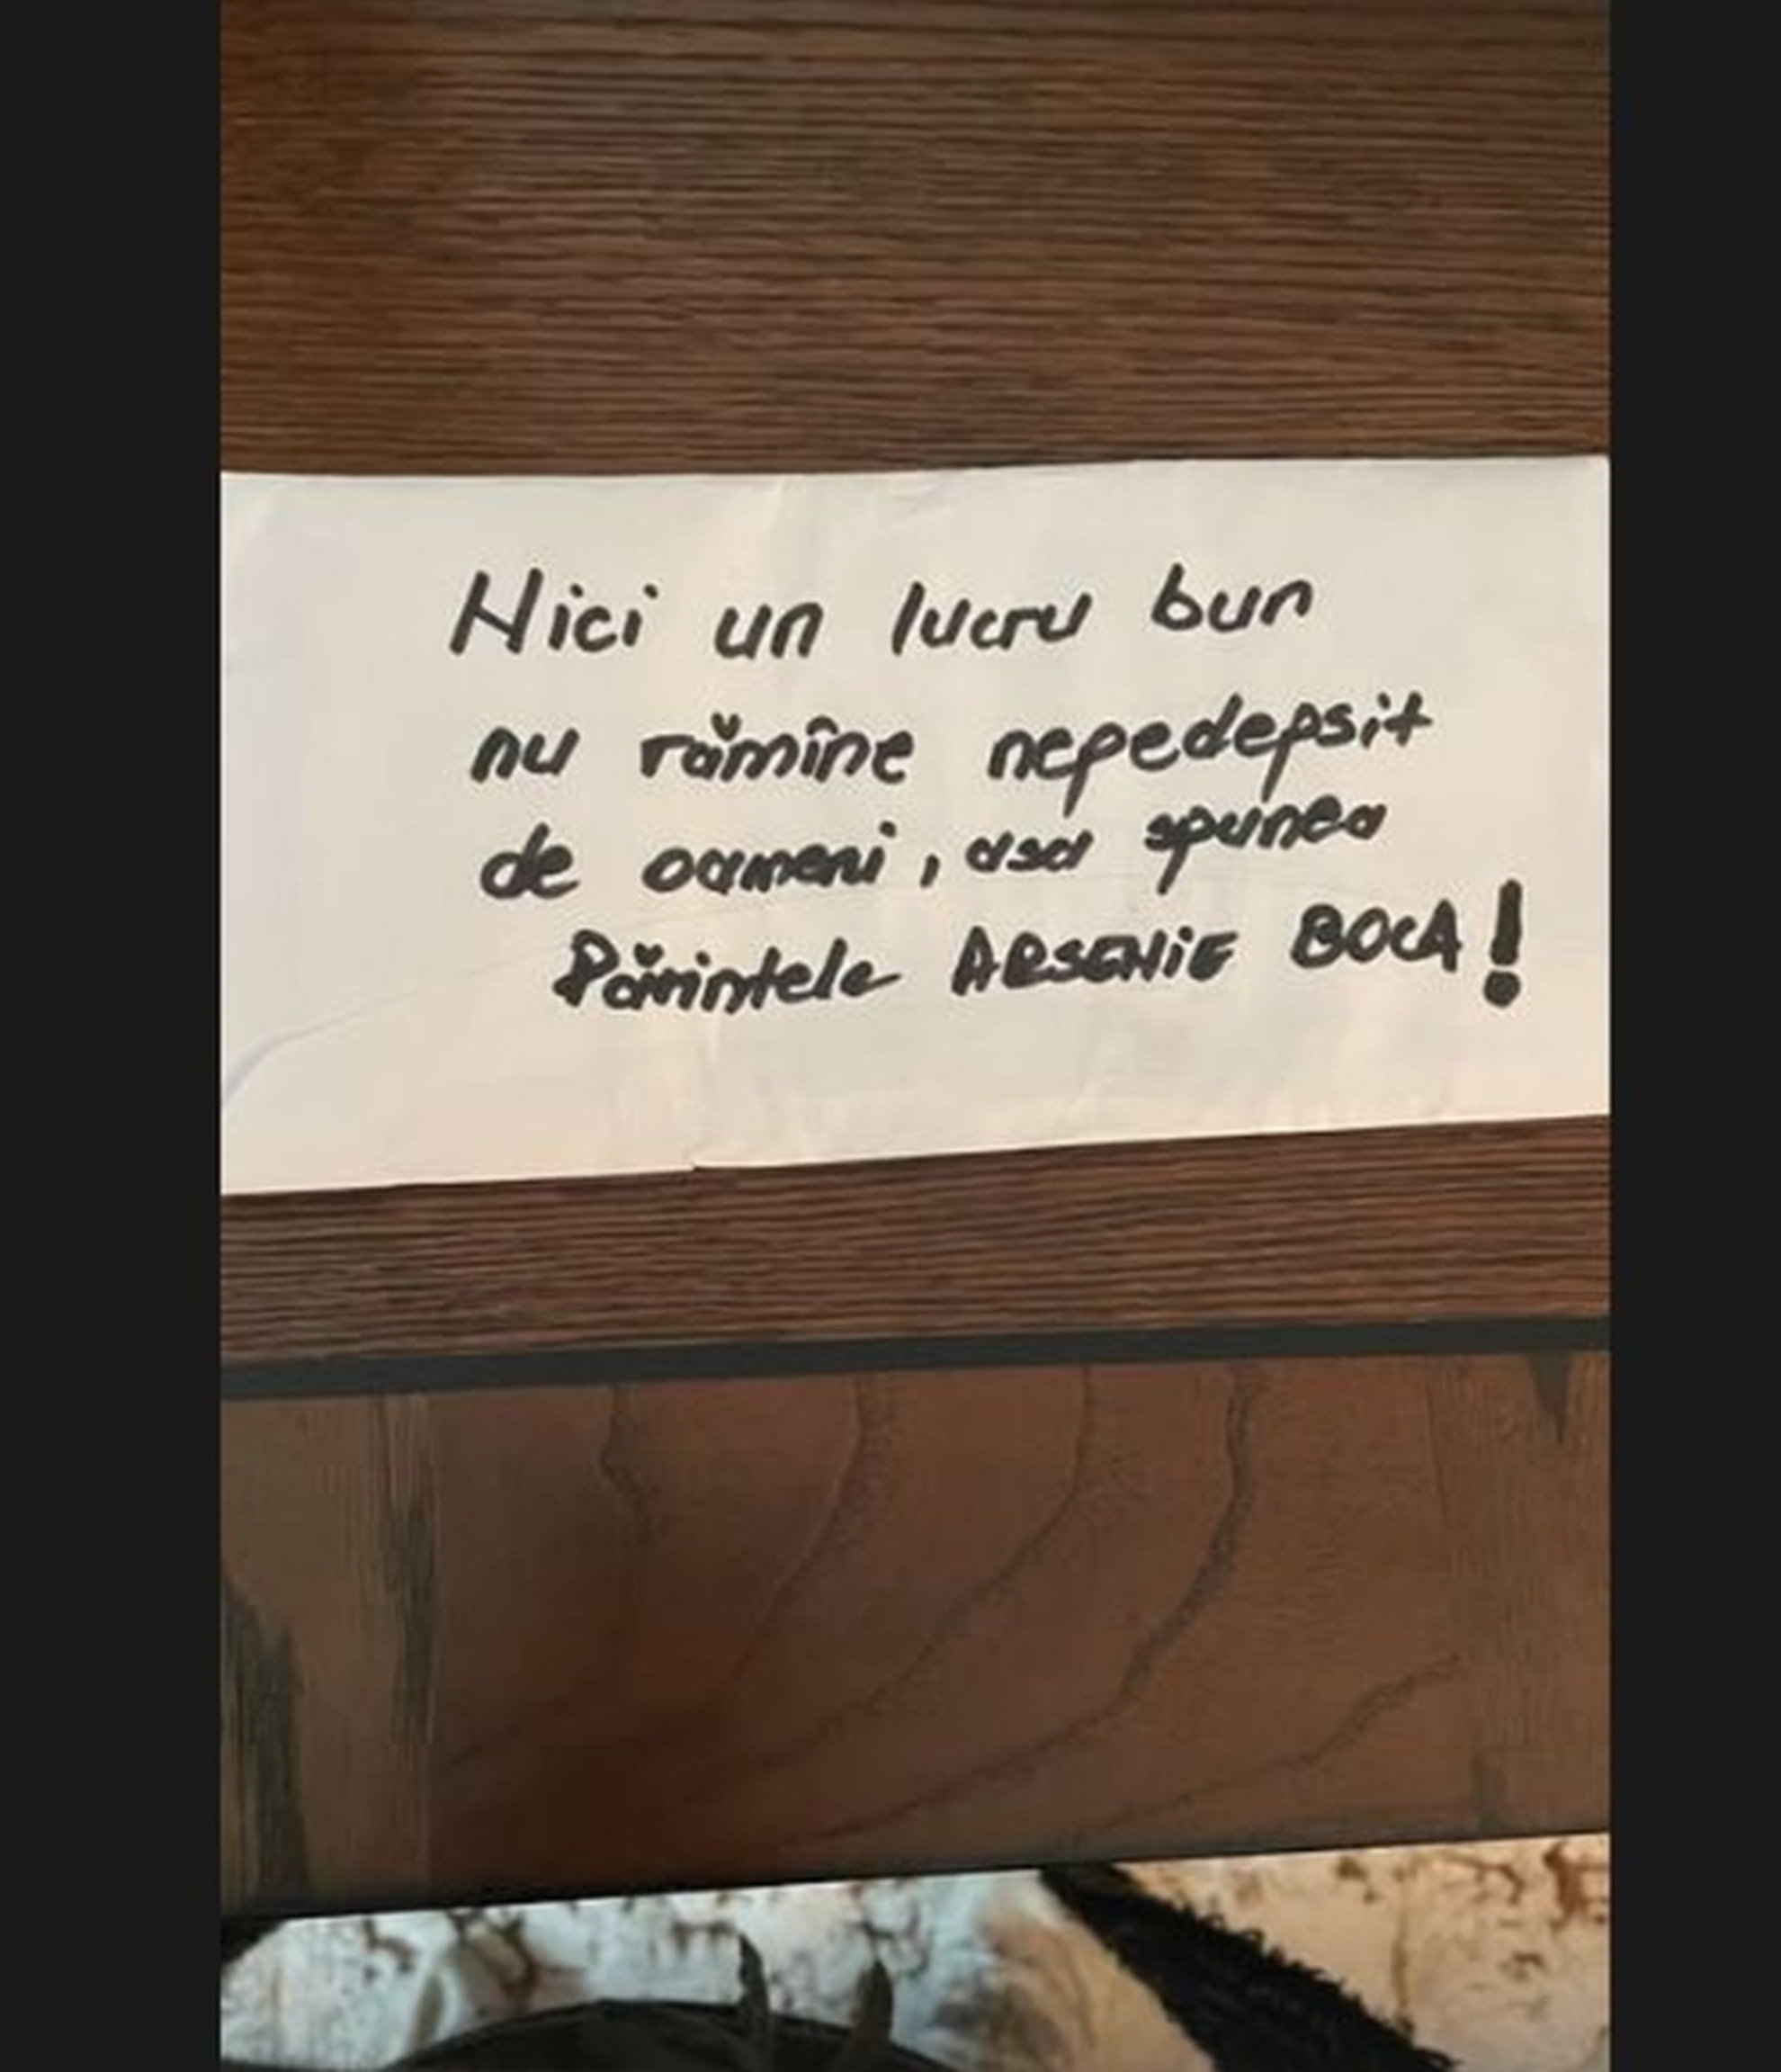 Nici un lucru bun
nu rămîne nepedepsit
de oameni, asa spunea
Părintele ARSENiE BOCA!